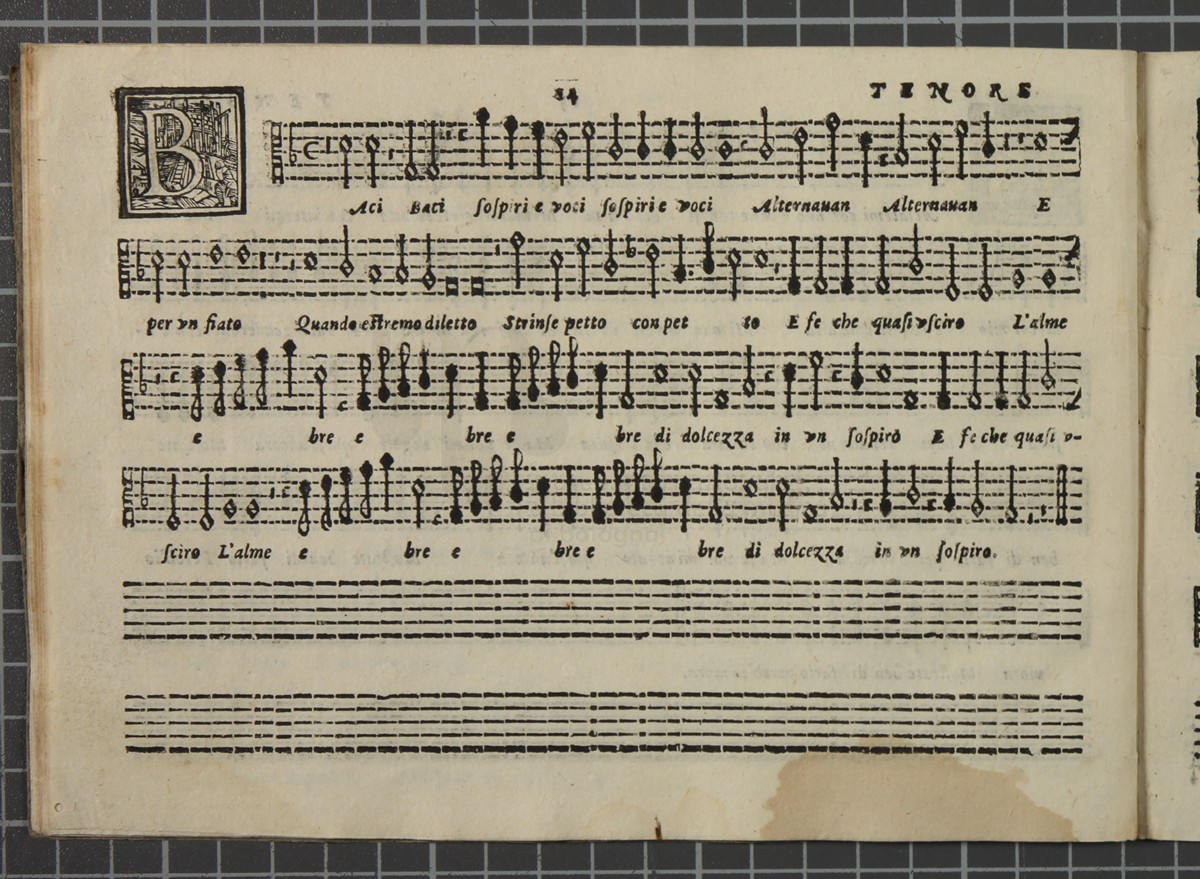 14 TENORE
BAci Baci ſoſpiri e voci ſoſpiri e voci Alternauan Alternauan E
per vn fiato Quando eſtremo diletto Strinſe petto con pet to E fe che quaſi vſciro L'alme
e bre e bre e bre di dolcezza in vn ſoſpiro E fe che quaſi v-
ſciro L'alme e bre e bre e bre di dolcezza in vn ſoſpiro.